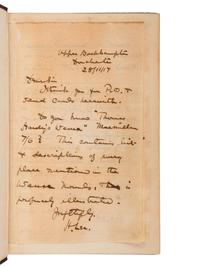 Upper Bockhampton
Dorchester
28/11/17
Dear Sir
I thank you for P.O. &
and Cards herewith.
Do you know "Thomas
Hardy's Wessex" Macmillan
7/6? This contains list
& descriptions of every
place mentioned in the
Wessex Novels,
profusely illustrated.
H. Lea.